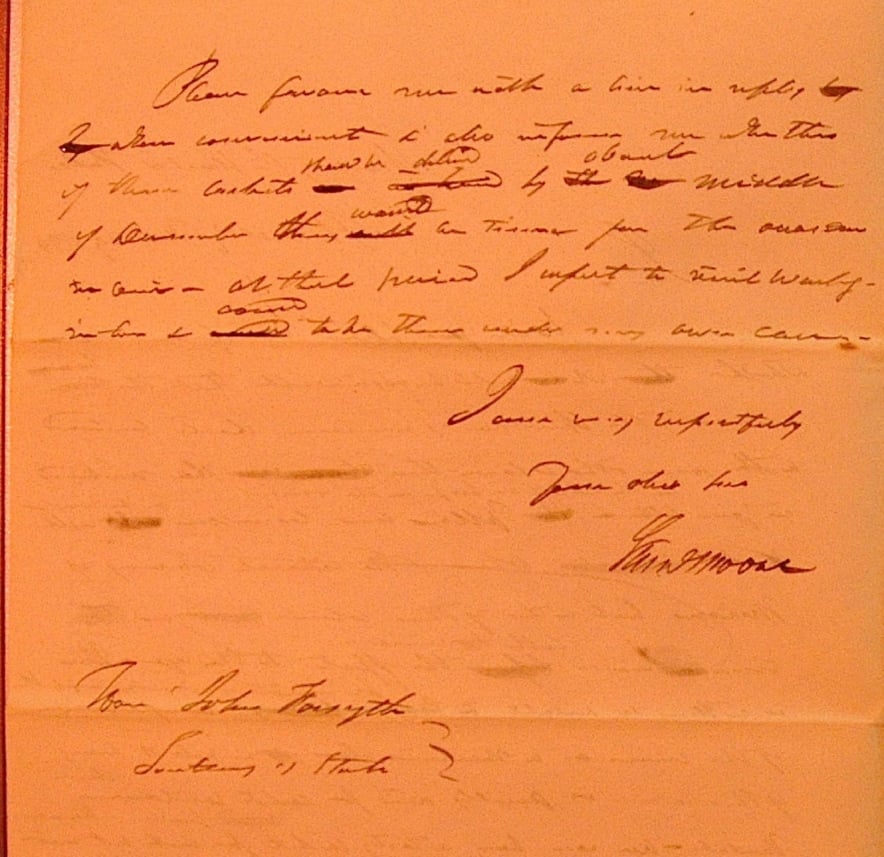 Please favour me with a line in reply
when convenient & also inform me whether
if these caskets should be delivd by about middle
of December they would be in time for the occasion
in view - at that period I expect to visit Washing-
ton & could take them under my own care -
I am very respectfully
Your obt Sev
Honl John Forsyth
Secretary of State